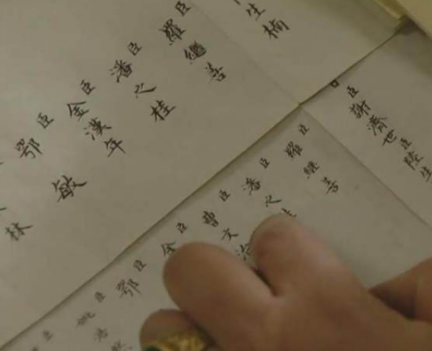 生楠
臣羅繼善
臣潘之桂
臣金漢年
臣鄂敏
林
臣謝濟世臣陸生
臣羅繼善
臣潘之
臣曹文
臣金
臣鄂
臣